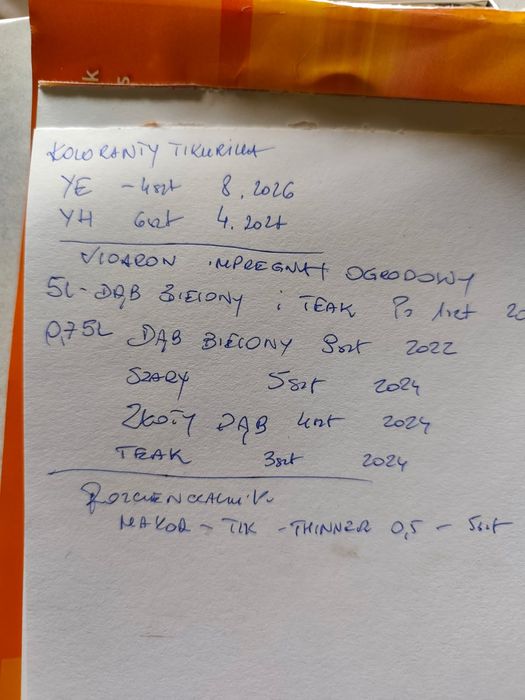 K
S
KOLORANTY TIKURILLA
YE - 4szt 8.2026
YH 6szt 4.2027
VIDARON IMPREGNAT OGRODOWY
5L - DĄB BIELONY i TEAK Po 1szt 20
0,75L DĄB BIELONY 9szt 2022
SZARY 5szt 2024
ZŁOTY DĄB 4szt 2024
TEAK 3szt 2024
ROZCIEŃCZALNIK
MAKOR - TIK - THINNER 0,5 - 5szt